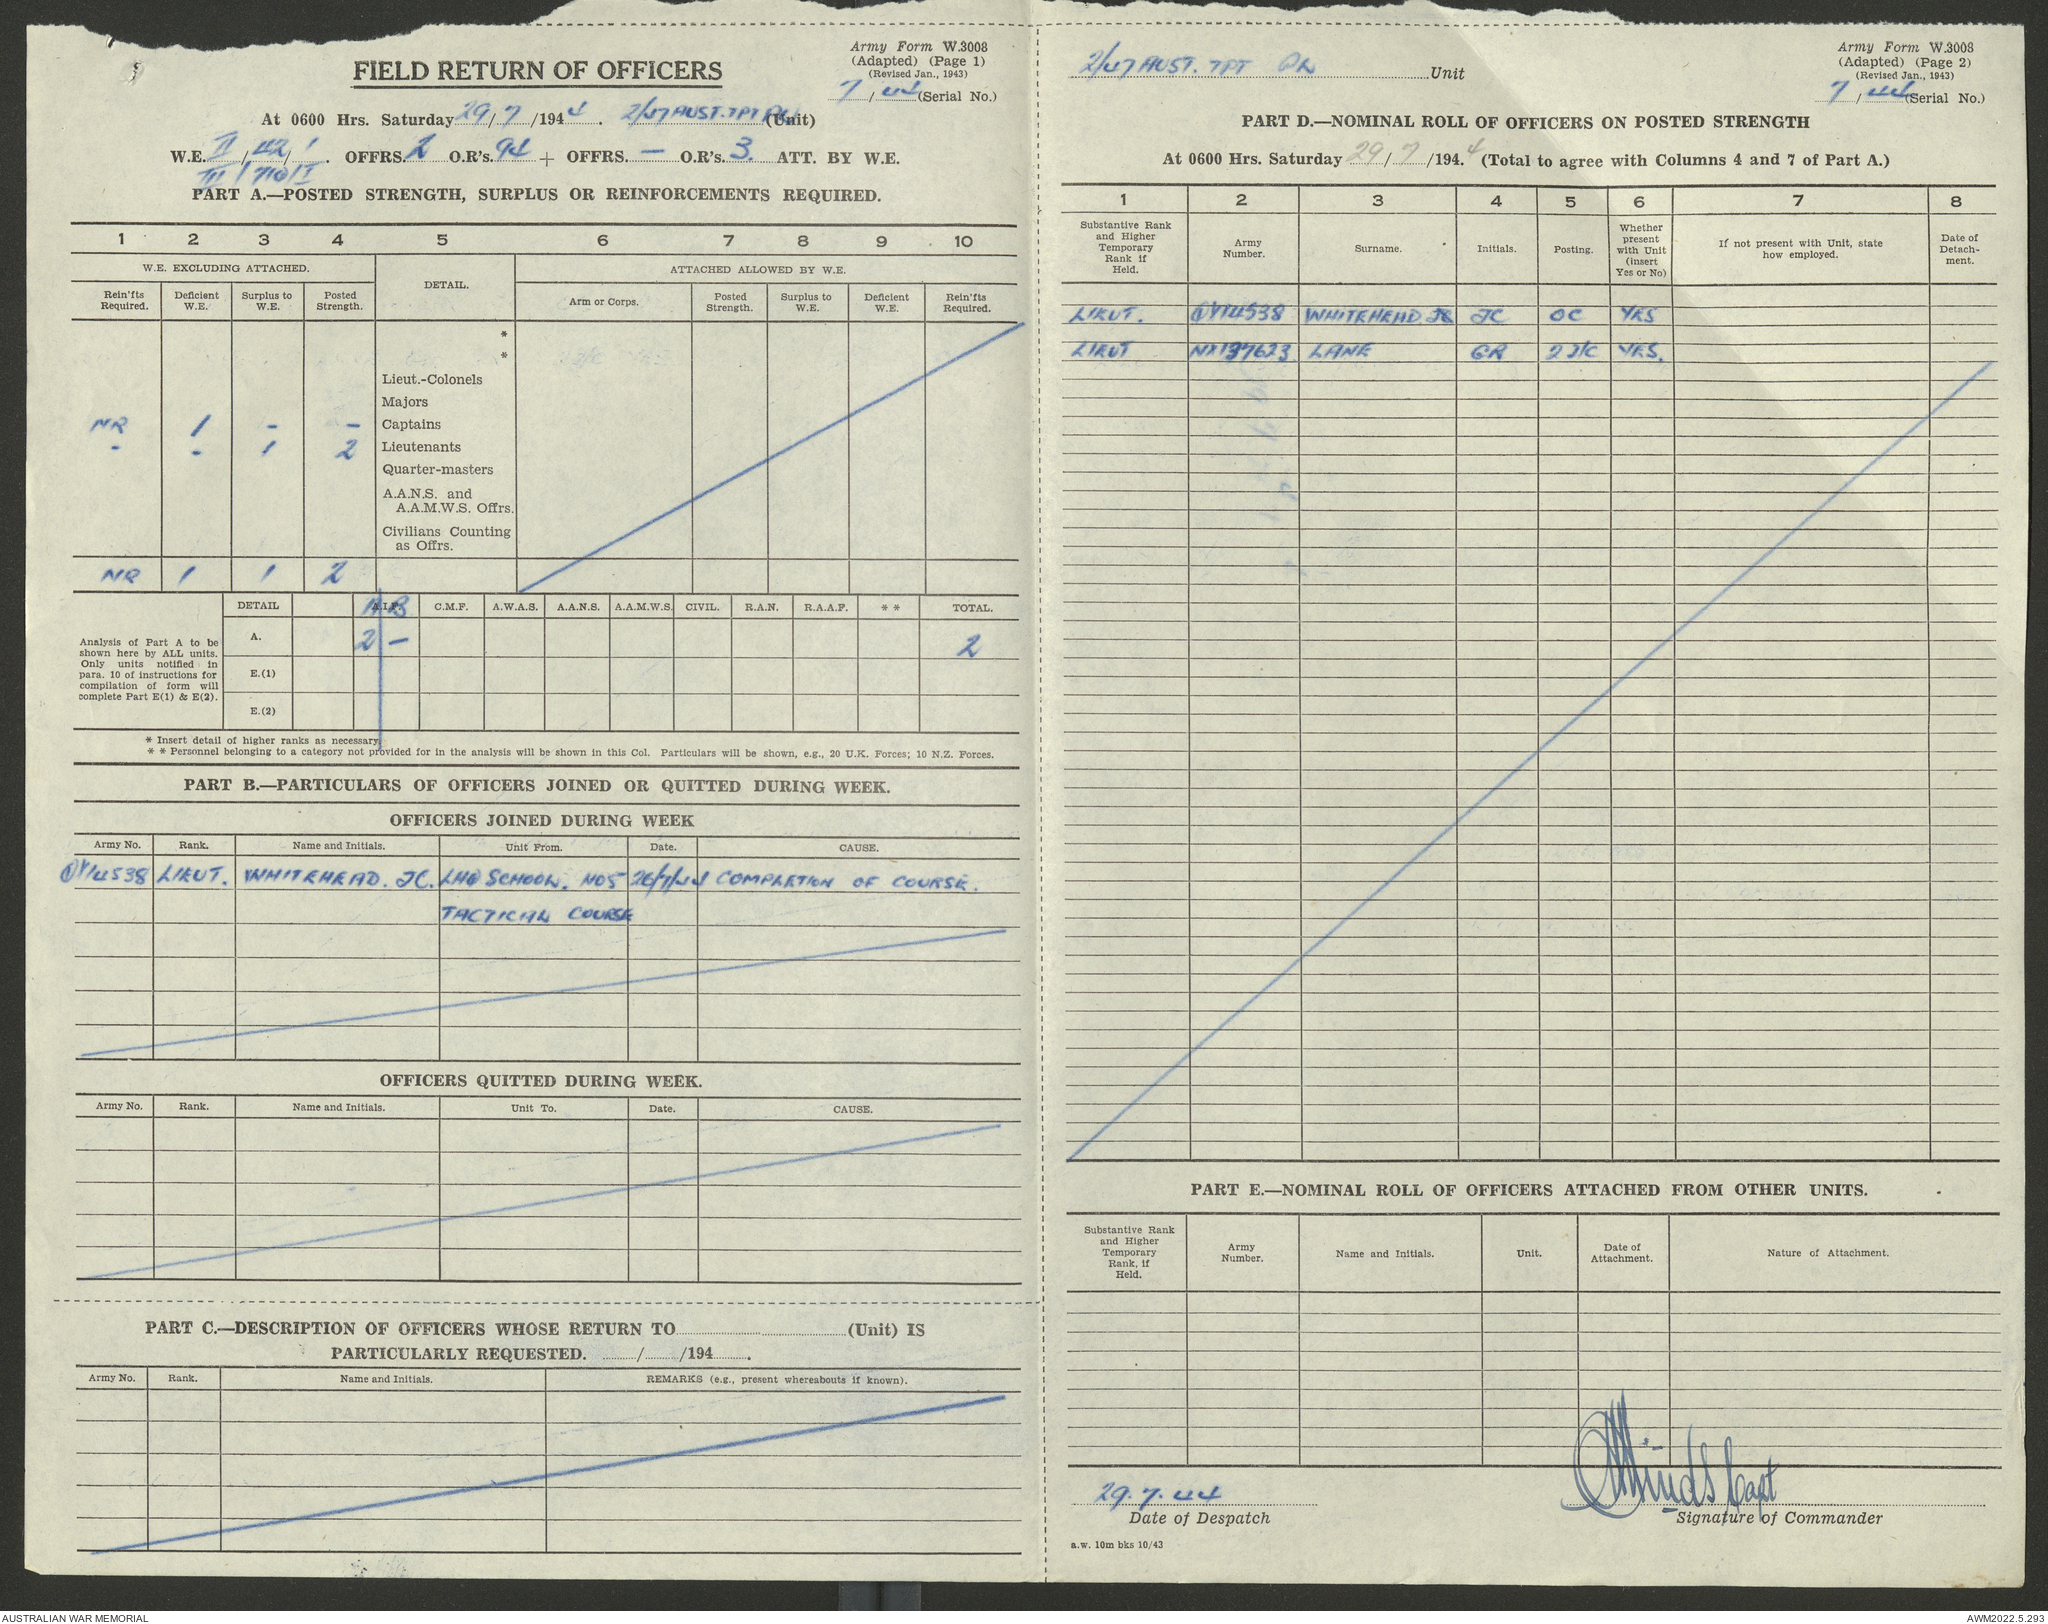 Army Form W.3008
(Adapted) (Page 1)
(Revised Jan., 1943)
7 / 44 (Serial No.)
FIELD RETURN OF OFFICERS
At 0600 Hrs. Saturday 29/7/1944. 2/47 AUST. TPT PLN (Unit)
W.E. II/42/1. OFFRS. 2 O.R's. 94 + OFFRS. — O.R's 3. ATT. BY W.E.
III/710/I
PART A.—POSTED STRENGTH, SURPLUS OR REINFORCEMENTS REQUIRED.
1 2 3 4 5 6 7 8 9 10
W.E. EXCLUDING ATTACHED. DETAIL. ATTACHED ALLOWED BY W.E.
Rein'fts Required. Deficient W.E. Surplus to W.E. Posted Strength. Arm or Corps. Posted Strength. Surplus to W.E. Deficient W.E. Rein'fts Required.
*
*
Lieut.-Colonels
Majors
NR 1 - - Captains
- - 1 2 Lieutenants
Quarter-masters
A.A.N.S. and
A.A.M.W.S. Offrs.
Civilians Counting
as Offrs.
NR 1 1 2
DETAIL A.I.F. A B C.M.F. A.W.A.S. A.A.N.S. A.A.M.W.S. CIVIL. R.A.N. R.A.A.F. * * TOTAL.
Analysis of Part A to be
shown here by ALL units.
Only units notified in
para. 10 of instructions for
compilation of form will
complete Part E(1) & E(2).
A. 2 — 2
E.(1)
E.(2)
* Insert detail of higher ranks as necessary.
* * Personnel belonging to a category not provided for in the analysis will be shown in this Col. Particulars will be shown, e.g., 20 U.K. Forces; 10 N.Z. Forces.
PART B.—PARTICULARS OF OFFICERS JOINED OR QUITTED DURING WEEK.
OFFICERS JOINED DURING WEEK
Army No. Rank. Name and Initials. Unit From. Date. CAUSE.
14538 LIEUT. WHITEHEAD. JC. LHQ SCHOOL. NO5 26/7/44 COMPLETION OF COURSE.
TACTICAL COURSE
OFFICERS QUITTED DURING WEEK.
Army No. Rank. Name and Initials. Unit To. Date. CAUSE.
PART C.—DESCRIPTION OF OFFICERS WHOSE RETURN TO (Unit) IS
PARTICULARLY REQUESTED. / /194 .
Army No. Rank. Name and Initials. REMARKS (e.g., present whereabouts if known).
2/47 AUST. TPT PLN Unit
Army Form W.3008
(Adapted) (Page 2)
(Revised Jan., 1943)
7 / 44 (Serial No.)
PART D.—NOMINAL ROLL OF OFFICERS ON POSTED STRENGTH
At 0600 Hrs. Saturday 29/7/194.4 (Total to agree with Columns 4 and 7 of Part A.)
1 2 3 4 5 6 7 8
Substantive Rank and Higher Temporary Rank if Held. Army Number. Surname. Initials. Posting. Whether present with Unit (insert Yes or No) If not present with Unit, state how employed. Date of Detach-ment.
LIEUT. 14538 WHITEHEAD JC OC YES
LIEUT NX137623 LANE GR 2 I/C YES.
PART E.—NOMINAL ROLL OF OFFICERS ATTACHED FROM OTHER UNITS.
Substantive Rank and Higher Temporary Rank, if Held. Army Number. Name and Initials. Unit. Date of Attachment. Nature of Attachment.
29.7.44
Date of Despatch
Hinds Capt
Signature of Commander
a.w. 10m bks 10/43
AUSTRALIAN WAR MEMORIAL
AWM2022.5.293